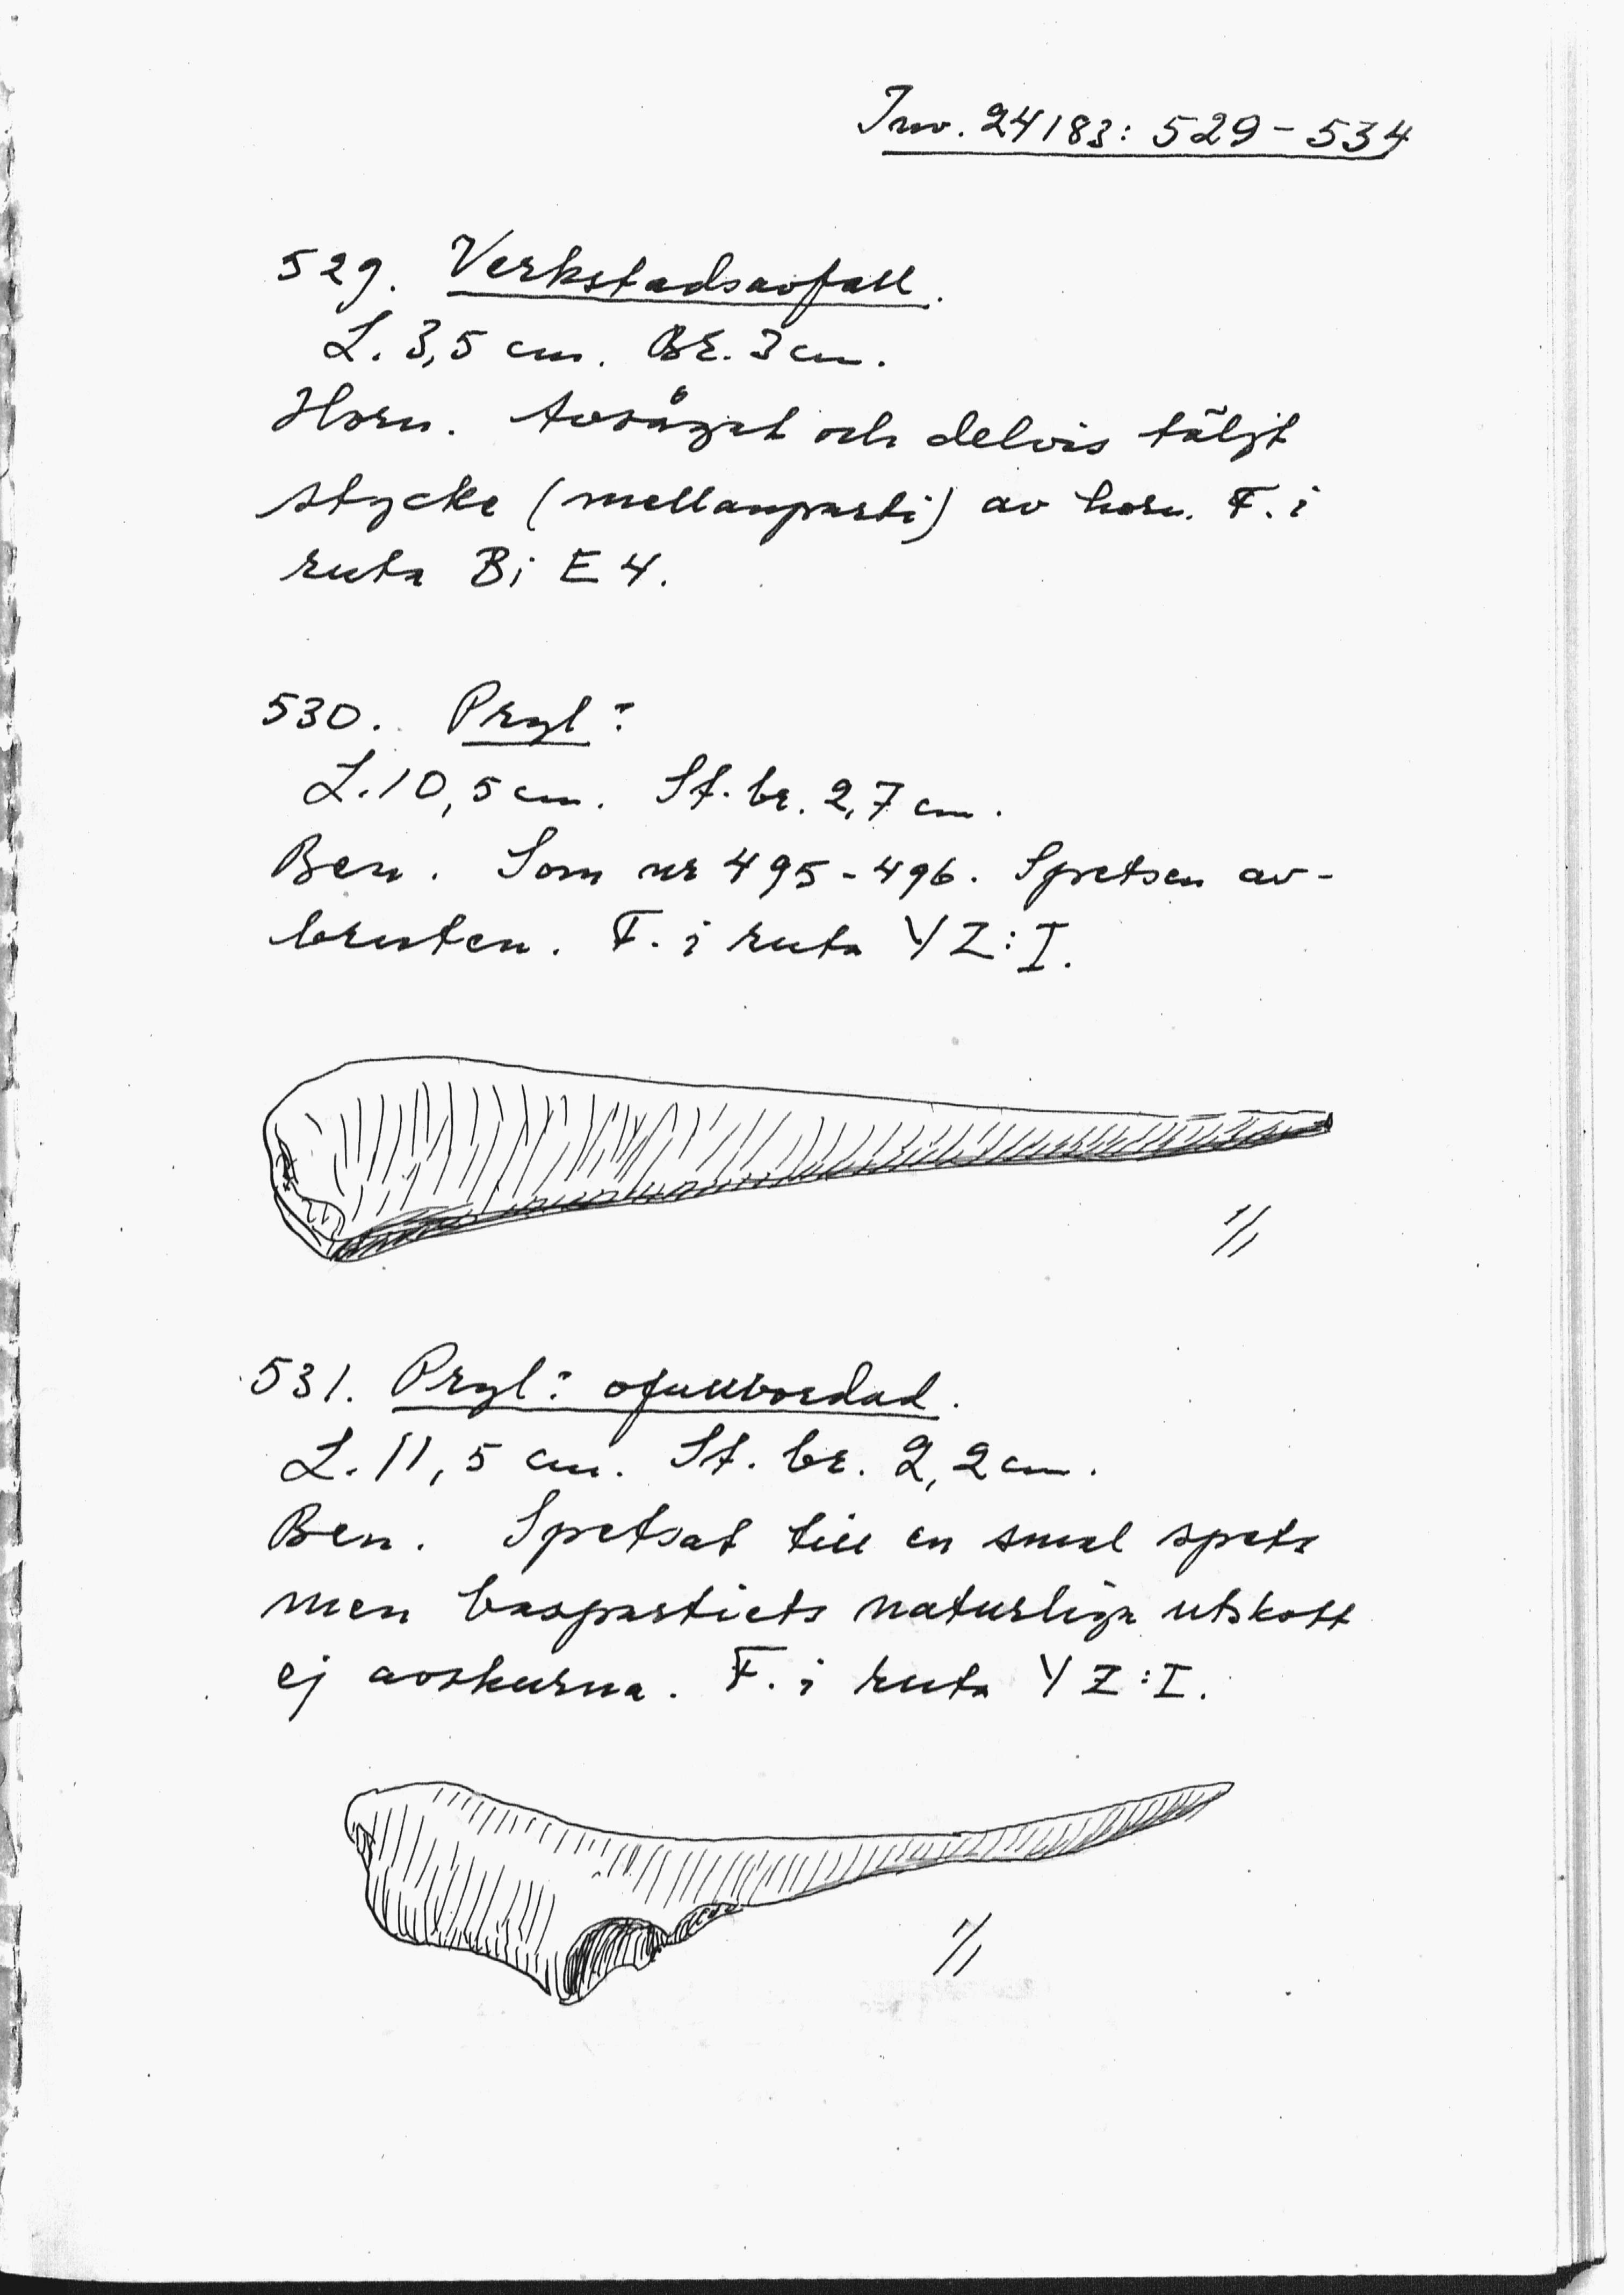 Inv. 24183: 529-534
529. Verkstadsavfall.
L. 3,5 cm. Br. 3 cm.
Horn. Avsågat och delvis täljt
stycke (mellanparti) av horn. F. i
ruta Bi E 4.
530. Pryl?
L. 10,5 cm. St. br. 2,7 cm.
Ben. Som nr 495-496. Spetsen av-
bruten. F. i ruta YZ:I.
1/1
531. Pryl? ofullbordad.
L. 11,5 cm. St. br. 2,2 cm.
Ben. Spetsat till en smal spets
men baspartiets naturliga utskott
ej avskurna. F. i ruta YZ:I.
1/1